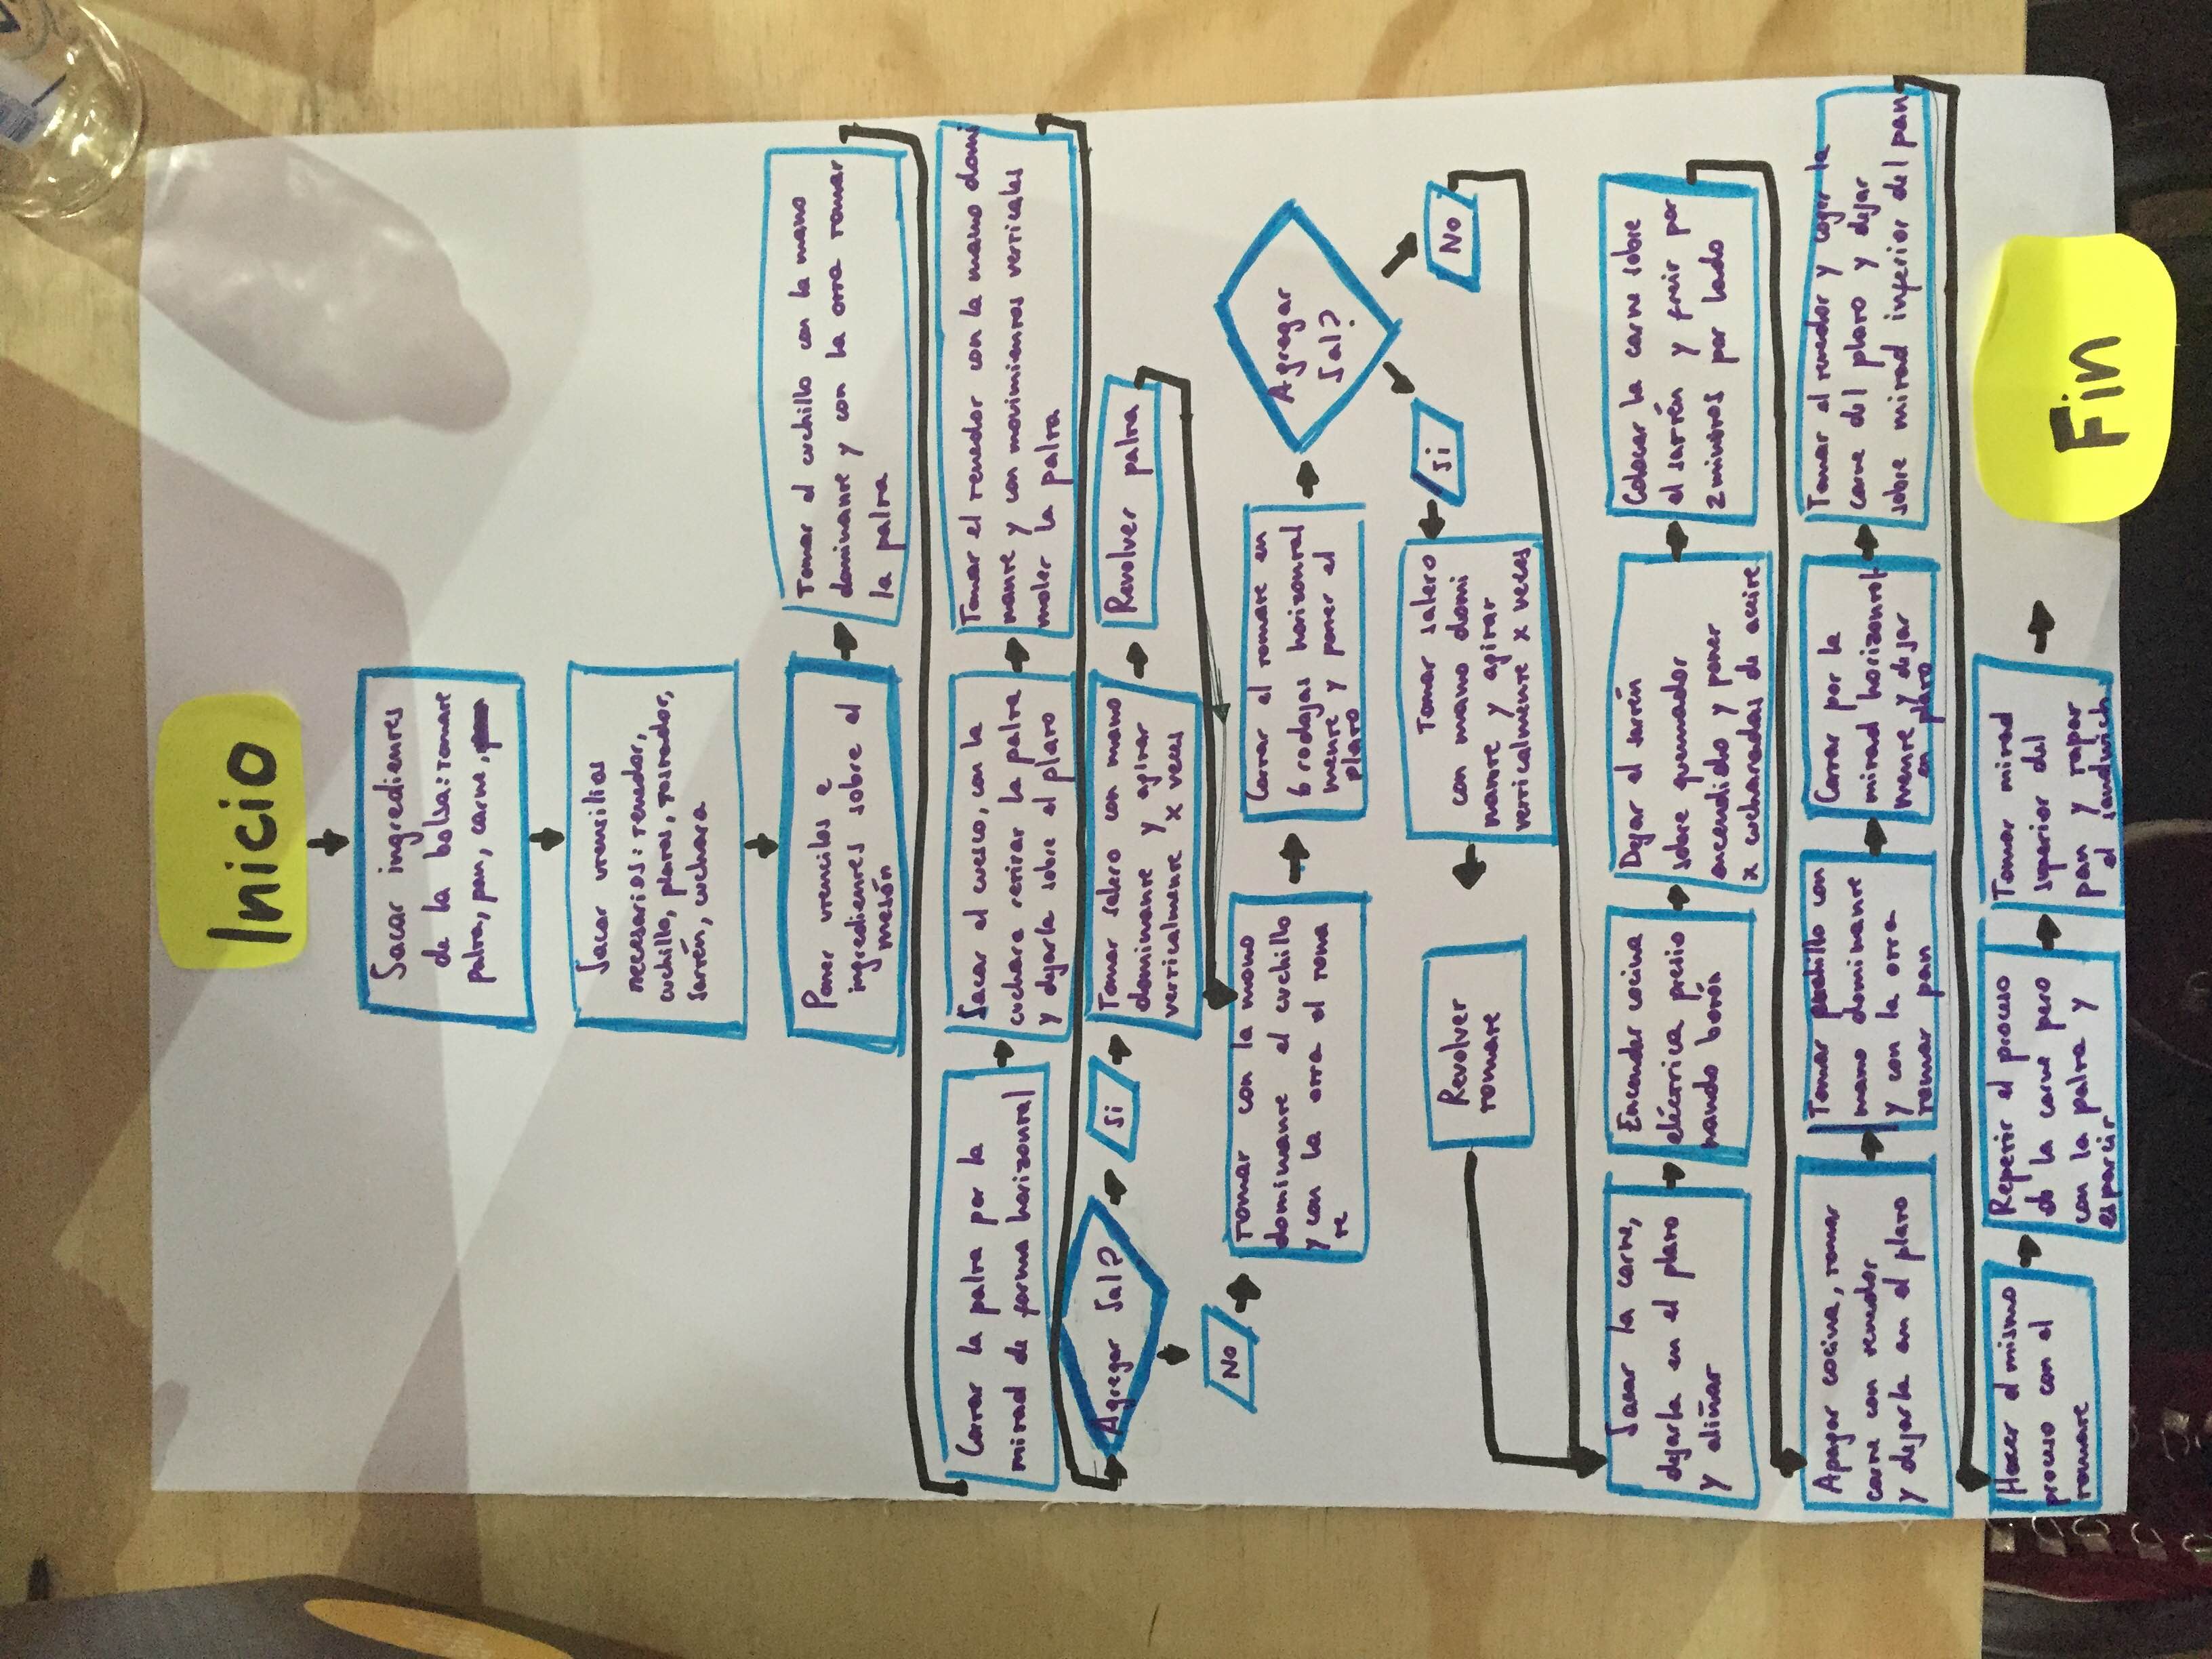 Inicio
Sacar ingredientes
de la bolsa: tomate
palta, pan, carne,
Sacar utensilios
necesarios: tenedor,
cuchillo, platos, tostador,
sartén, cuchara
Poner utencilos e
ingredientes sobre el
mesón
Tomar el cuchillo con la mano
dominante y con la otra tomar
la palta
Cortar la palta por la
mitad de forma horizontal
Sacar el cuesco, con la
cuchara retirar la palta
y dejarla sobre el plato
Tomar el tenedor con la mano domi
nante y con movimientos verticales
moler la palta
Agregar Sal?
Si
Tomar salero con mano
dominante y agitar
verticalmente x veces
Revolver palta
No
Tomar con la mano
dominante el cuchillo
y con la otra el toma
te
Cortar el tomate en
6 rodajas horizontal
mente y poner el
plato
Agregar
Sal?
Si
No
Tomar salero
con mano domi
nante y agitar
verticalmente x veces
Revolver
tomate
Sacar la carne,
dejarla en el plato
y aliñar
Encender cocina
eléctrica presio
nando botón
Dejar el sartén
sobre quemador
encendido y poner
x cucharadas de aceite
Colocar la carne sobre
el sartén y freir por
2 minutos por lado
Apagar cocina, tomar
carne con tenedor
y dejarla en el plato
Tomar cuchillo con
mano dominante
y con la otra
tomar pan
Cortar por la
mitad horizontal
mente y dejar
en plato
Tomar el tenedor y coger la
carne del plato y dejar
sobre mitad inferior del pan
Hacer el mismo
proceso con el
tomate
Repetir el proceso
de la carne pero
con la palta y
esparcir
Tomar mitad
superior del
pan y tapar
el sandwich
Fin